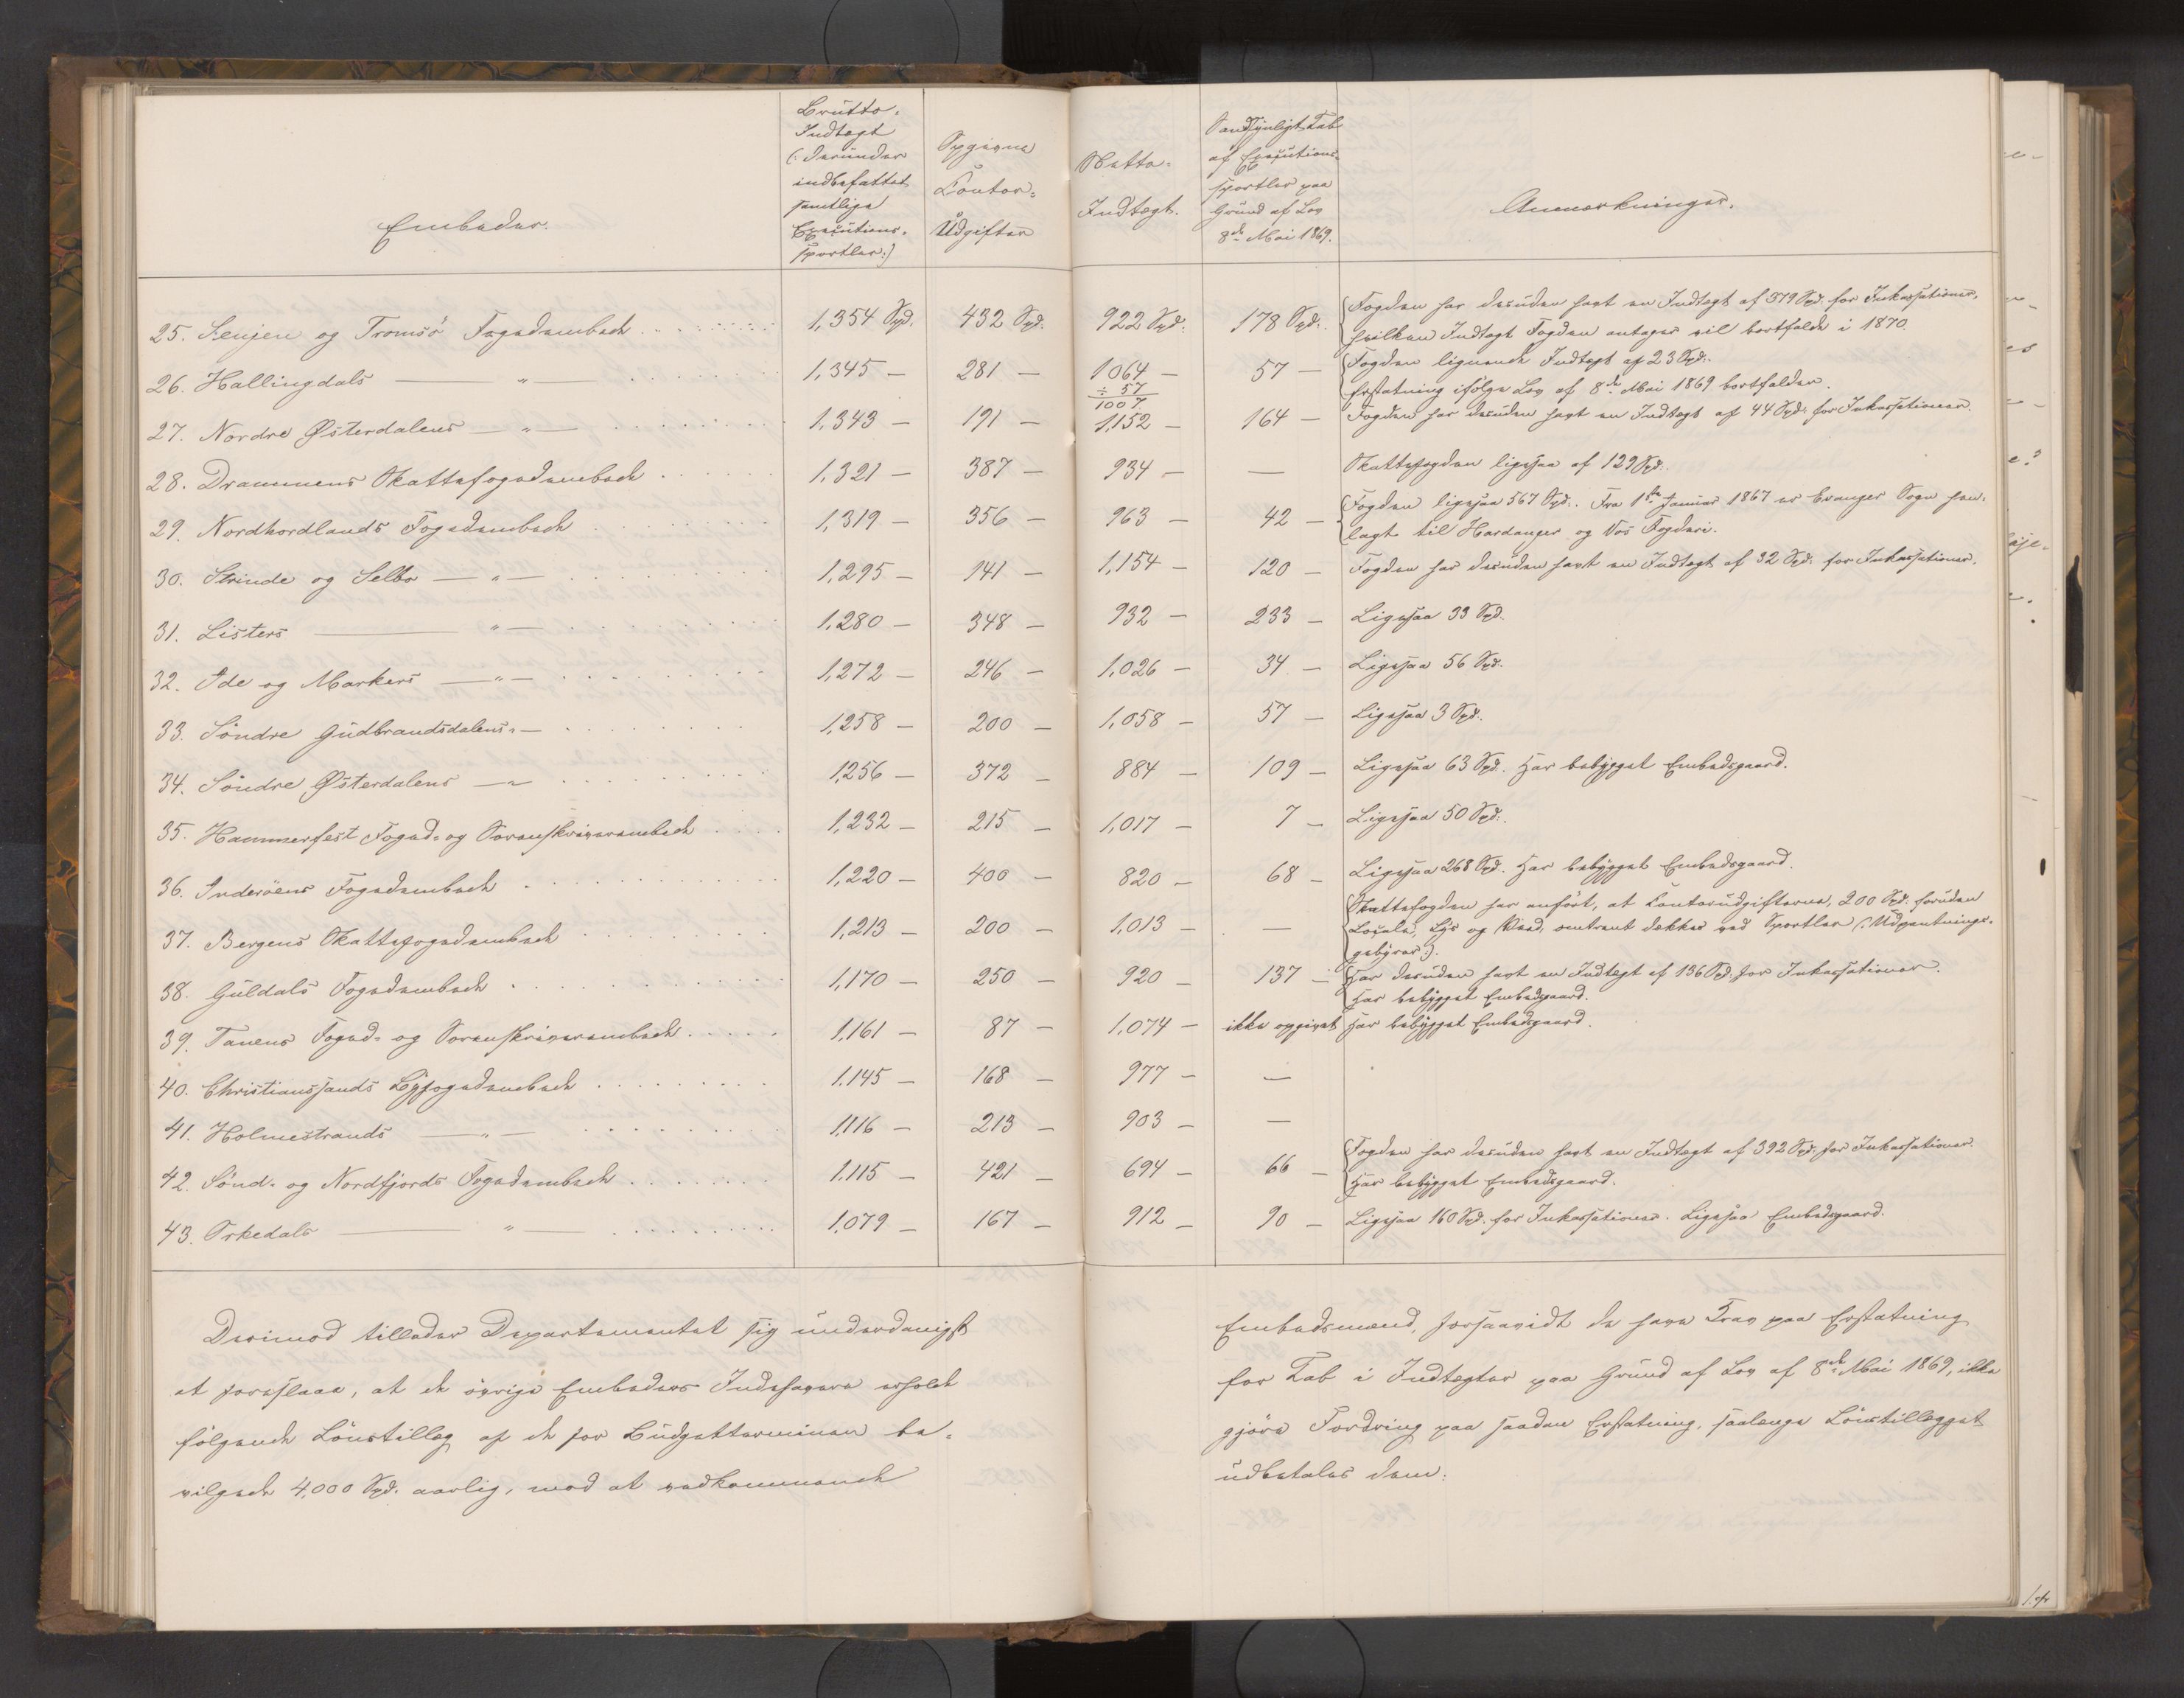 Embeder.
Brutto-
Indtægt
(: derunder
indbefattet
samtlige
Exekutions-
sportler:)
Opgivne
Contor-
Udgifter
Netto-
Indtægt.
Sandsynligt Tab
af Exekutions-
sportler paa
Grund af Lov
8de Mai 1869.
Anmærkninger.
25. Senjen og Tromsö Fogedembede 1,354 Spd. 432 Spd. 922 Spd. 178 Spd. Fogden har desuden havt en Indtægt af 379 Spd. for Inkassationer,
hvilken Indtægt Fogden antager vil bortfalde i 1870.
26. Hallingdals — " 1,345 — 281 — 1064 — 57 — Fogden lignende Indtægt af 23 Spd.
÷ 57
1007 Erstatning ifölge Lov af 8de Mai 1869 bortfalden.
27. Nordre Østerdalens — " — 1,343 — 191 — 1,152 — 164 — Fogden har desuden havt en Indtægt af 44 Spd. for Inkassationer.
28. Drammens Skattefogedembede 1,321 — 387 — 934 — — Skattefogden ligesaa af 129 Spd.
29. Nordhordlands Fogedembede 1,319 — 356 — 963 — 42 — Fogden ligesaa 567 Spd. Fra 1ste Januar 1867 er Evanger Sogn hen-
lagt til Hardanger og Vos Fogderi.
30. Strinde og Selbo — " — 1,295 — 141 — 1,154 — 120 — Fogden har desuden havt en Indtægt af 32 Spd. for Inkassationer.
31. Listers — " — 1,280 — 348 — 932 — 233 — Ligesaa 33 Spd.
32. Ide og Markers — " — 1,272 — 246 — 1,026 — 34 — Ligesaa 56 Spd.
33. Söndre Gudbrandsdalens " — 1,258 — 200 — 1,058 — 57 — Ligesaa 3 Spd.
34. Söndre Østerdalens — " 1,256 — 372 — 884 — 109 — Ligesaa 63 Spd. Har bebygget Embedsgaard.
35. Hammerfest Foged- og Sorenskriverembede 1,232 — 215 — 1,017 — 7 — Ligesaa 50 Spd.
36. Inderöens Fogedembede 1,220 — 400 — 820 — 68 — Ligesaa 268 Spd. Har bebygget Embedsgaard.
37. Bergens Skattefogedembede 1,213 — 200 — 1,013 — — Skattefogden har anfört, at Contorudgifterne, 200 Spd. foruden
Locale, Lys og Brænde, omtrent dækkes ved Sportler (: Udpantnings-
gebyrer:).
38. Guldals Fogedembede 1,170 — 250 — 920 — 137 — Har desuden havt en Indtægt af 136 Spd. for Inkassationer.
Har bebygget Embedsgaard.
39. Tanens Foged- og Sorenskriverembede 1,161 — 87 — 1,074 — ikke opgivet Har bebygget Embedsgaard.
40. Christianssands Byfogedembede 1,145 — 168 — 977 — —
41. Holmestrands — " — 1,116 — 213 — 903 — —
42. Sönd- og Nordfjords Fogedembede 1,115 — 421 — 694 — 66 — Fogden har desuden havt en Indtægt af 392 Spd. for Inkassationer.
Har bebygget Embedsgaard.
43. Orkedals — " — 1,079 — 167 — 912 — 90 — Ligesaa 160 Spd. for Inkassationer. Ligesaa Embedsgaard.
Derimod tillader Departementet sig underdanigst
at foreslaae, at de övrige Embeders Indehavere erholde
følgende Lönstillæg af de for Budgetterminen be-
vilgede 4,000 Spd. aarlig, mod at vedkommende
Embedsmænd, forsaavidt de have Krav paa Erstatning
for Tab i Indtægter paa Grund af Lov af 8de Mai 1869, ikke
gjöre Fordring paa saadan Erstatning, saalænge Lönstillægget
udbetales dem: